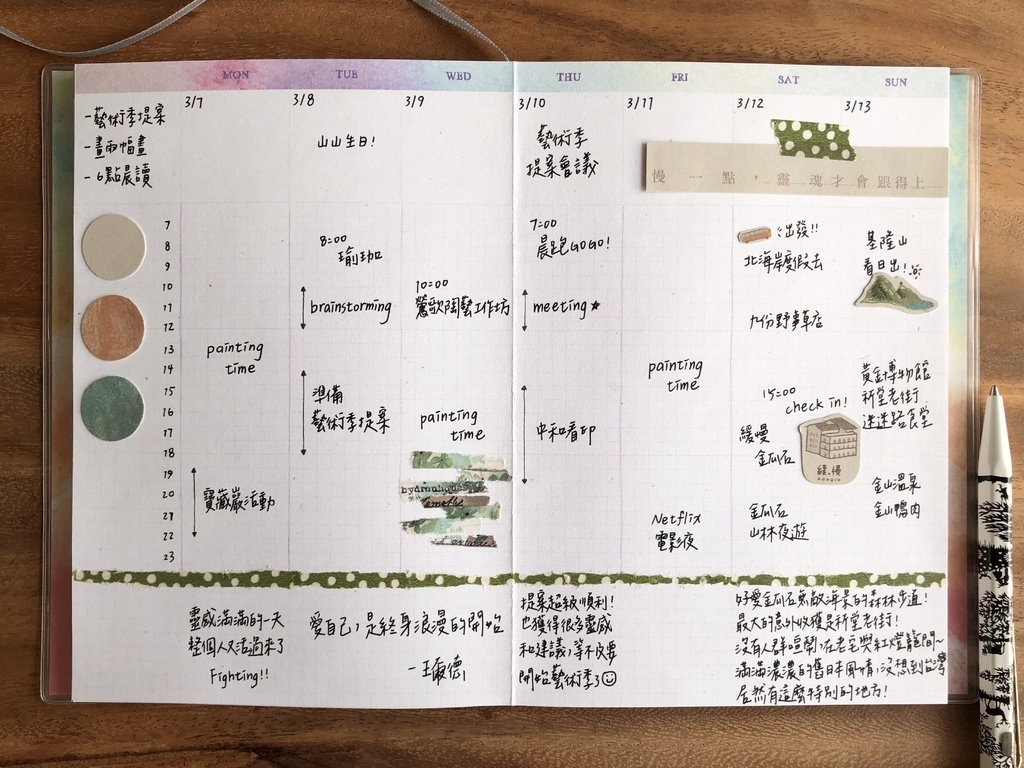 MON TUE WED THU FRI SAT SUN
3/7 3/8 3/9 3/10 3/11 3/12 3/13
-藝術季提案
-畫兩幅畫
-6點晨讀
山山生日!
藝術季
提案會議
慢一點，靈魂才會跟得上
7
8
9
10
11
12
13
14
15
16
17
18
19
20
21
22
23
painting
time
寶藏巖活動
8:00
瑜珈
brainstorming
準備
藝術季提案
10:00
鶯歌陶藝工作坊
painting
time
7:00
晨跑GOGO!
meeting★
中和看印
painting
time
Netflix
電影夜
出發!!
北海岸度假去
九份野事草店
15:00
check in!
緩慢
金瓜石
緩.慢
Adagio
金瓜石
山林夜遊
基隆山
看日出!
黃金博物館
祈堂老街
迷迷路食堂
金山溫泉
金山鴨肉
靈感滿滿的一天
整個人又活過來了
Fighting!!
愛自己,是終身浪漫的開始
-王爾德
提案超級順利!
也獲得很多靈感
和建議,等不及要
開始藝術季了☺
好愛金瓜石無敵海景的森林步道!
最大的意外收穫是祈堂老街!
沒有人群喧鬧,在老宅與紅燈籠間~
滿滿濃濃的舊日本風情,沒想到台灣
居然有這麼特別的地方!